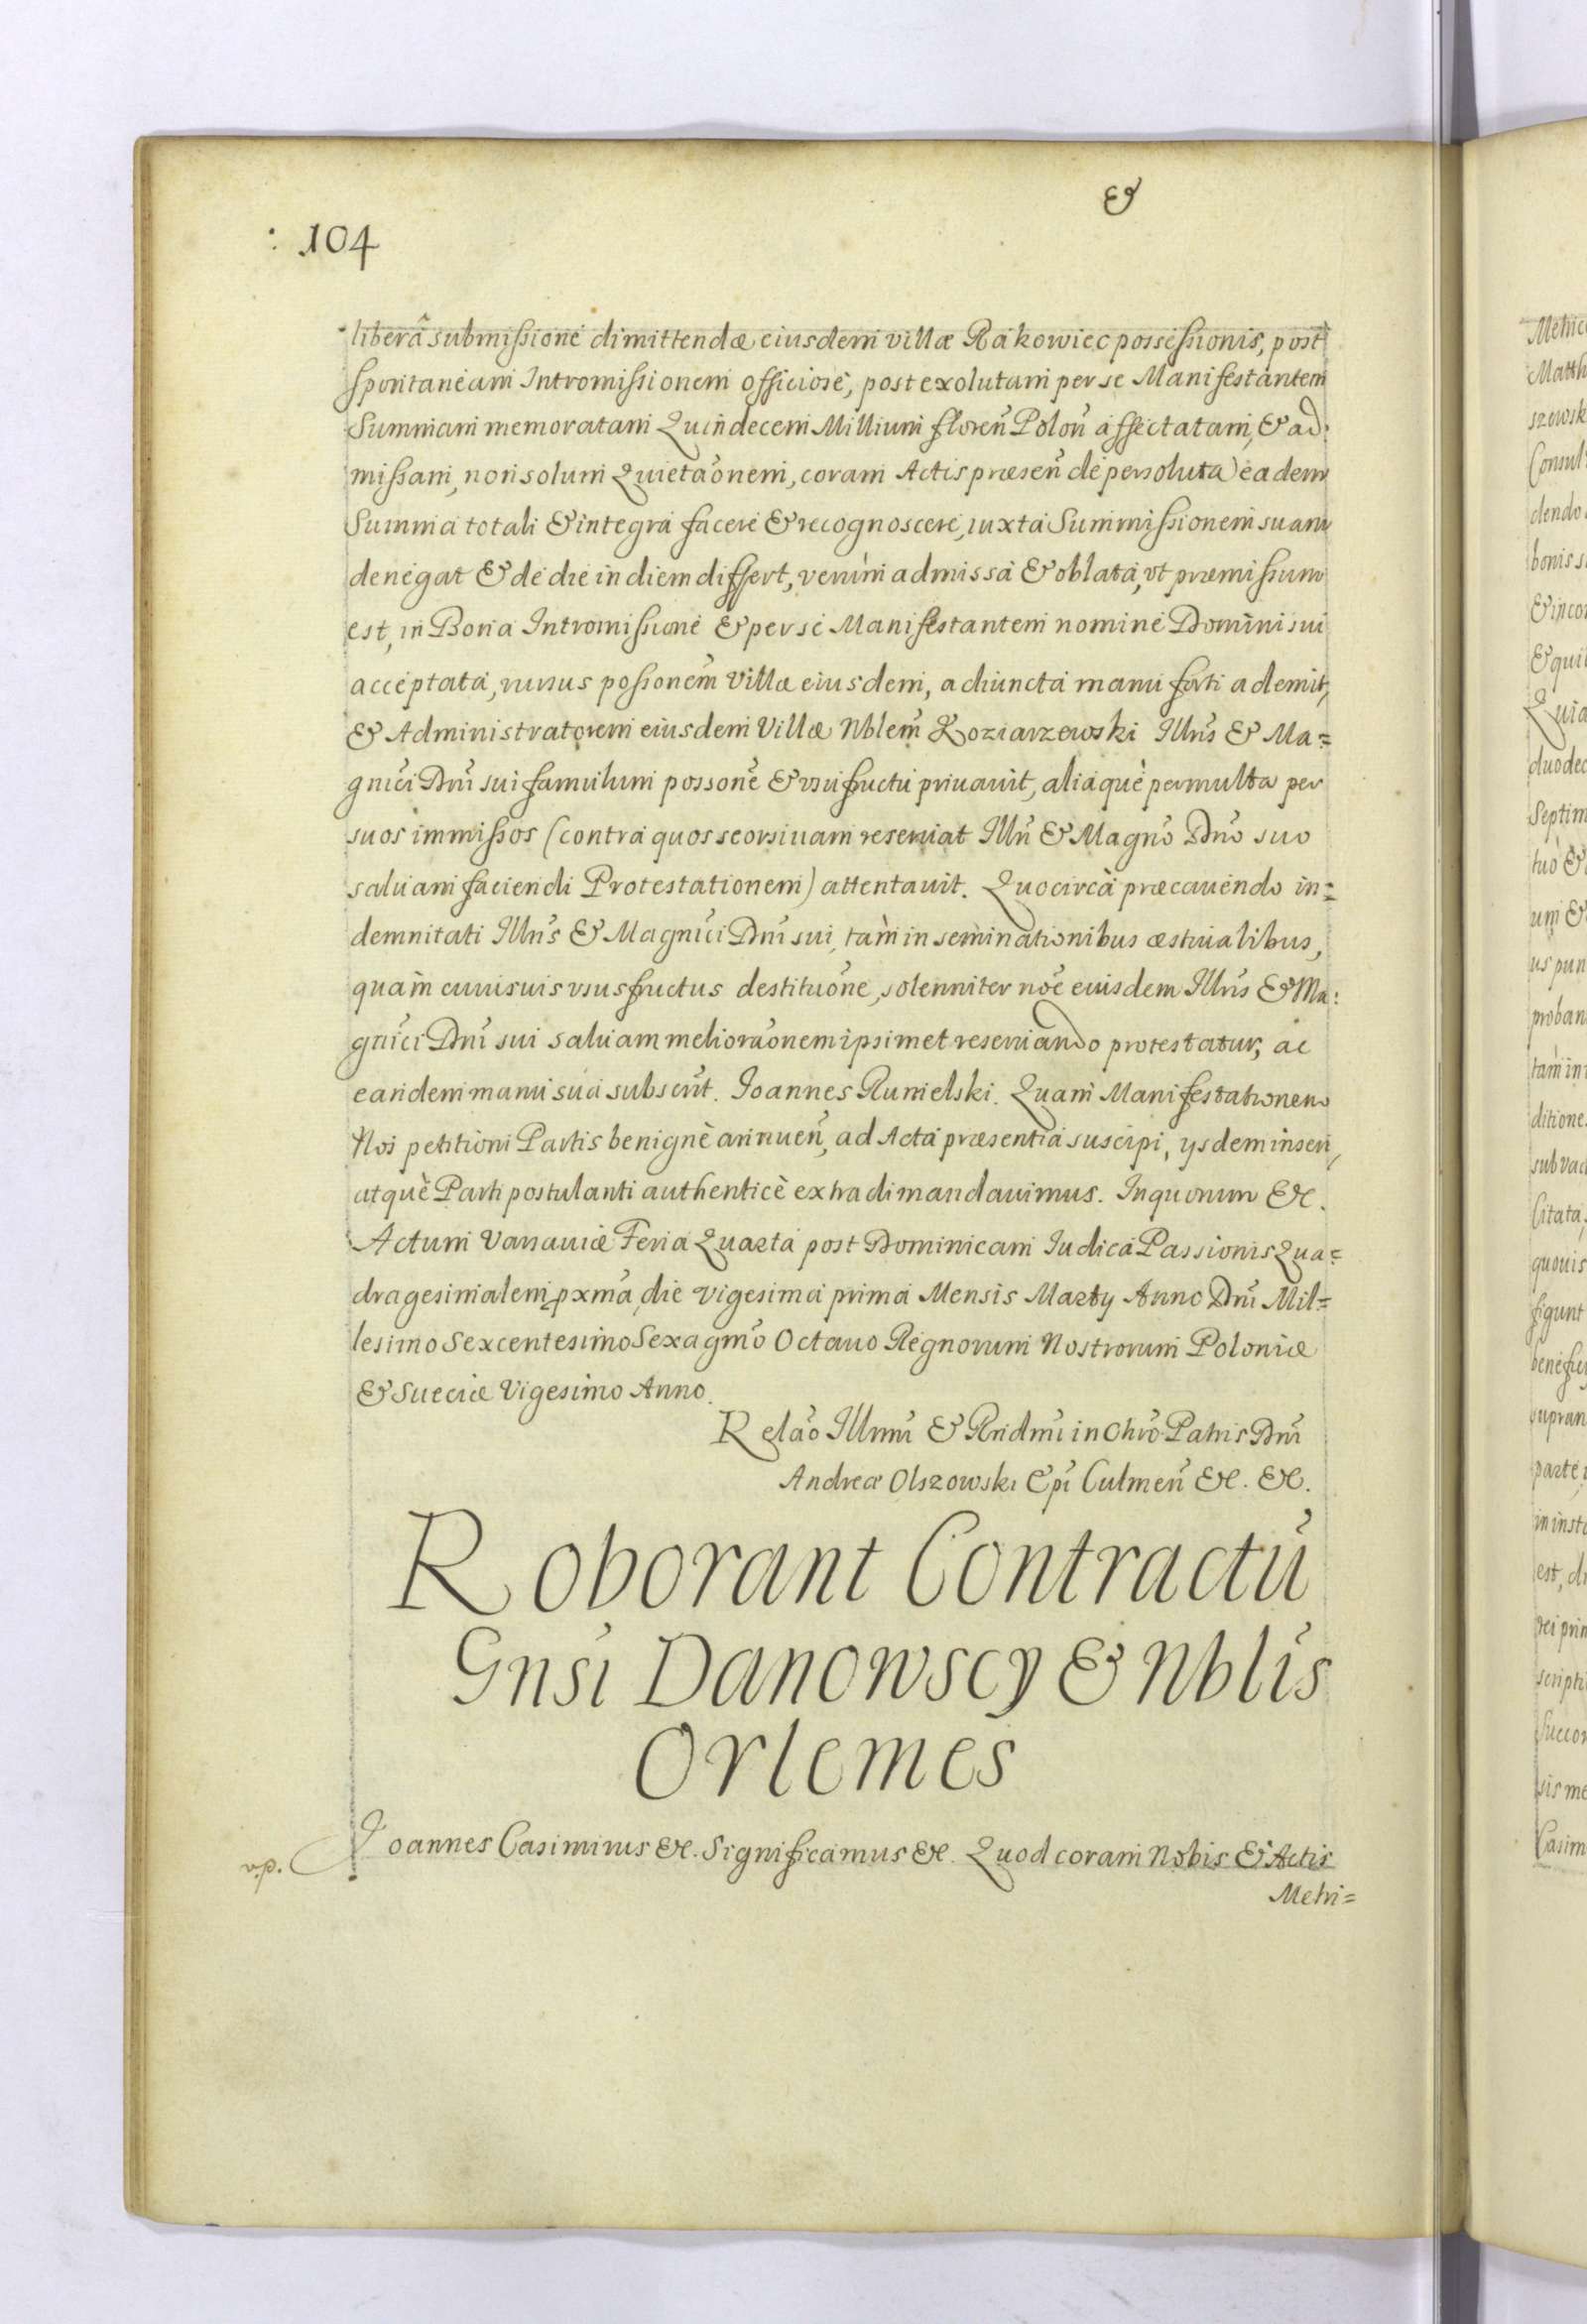 &
104
liberâ submissione dimittendæ eiusdem villæ Rakowiec possessionis, post
spontaneam Intromissionem officiose, post exolutam per se Manifestantem
Summam memoratam Quindecem Millium floren̄ Polon̄ affectatam, & ad:
missam, non solum Quietaōnem, coram Actis præsen̄ de persoluta eadem
Summa totali & integra facere & recognoscere, iuxta Summissionem suam
denegat & de die in diem differt, verùm admissa & oblata, vt præmissum
est, in Bona Intromissione & per se Manifestantem nomine Domini sui
acceptata, rursus possionem̄ Villæ eiusdem, adiuncta manu forti ademit,
& Administratorem eiusdem Villæ Nblem̄ Koziarzewski Illrīs & Ma=
gnīci Dnī sui famulum possonē & vsufructu priuauit, aliaquè permulta per
suos immissos (contra quos seorsiuam reseruat Illrī & Magnō Dnō suo
saluam faciendi Protestationem) attentauit. Quocircà præcauendo in=
demnitati Illrīs & Magnīci Dnī sui, tàm in seminationibus æstiualibus,
quàm cuiusuis vsusfructus destituōne, solenniter noē eiusdem Illrīs & Ma:
gnīci Dnī sui saluam melioraōnem ipsimet reseruando protestatur, ac
eandem manu sua subscrīt. Ioannes Rumelski. Quam Manifestationem
Nos petitioni Partis benignè annuen̄, ad Acta præsentia suscipi, ysdem inseri,
atquè Parti postulanti authenticè extradi mandauimus. In quorum &c.
Actum Varsauiæ Feria Quarta post Dominicam Iudica Passionis Qua=
dragesimalem pxmā, die vigesima prima Mensis Marty Anno Dnī Mil=
lesimo Sexcentesimo Sexagmō Octauo Regnorum Nostrorum Poloniæ
& Sueciæ Vigesimo Anno.
Relaō Illrmī & Rndmī in Chrō Patris Dnī
Andreæ Olszowski Epī Culmen̄ &c. &c.
Roborant Contractū
Gnsī Danowscy & Nblīs
Orlemes
Ioannes Casimirus &c. Significamus &c. Quod coram Nobis & Actis
v.p.
Metri=
Metric
Matth
szowsk
Consul
dendo
bonis s
& incor
& quil
Quia
duodec
Septim
tuò &
um &
us pun
proban
tàm in
ditione
sub vad
Citata,
quouis
figunt
benefic
supran
parte,
in inst
est, di
rei prin
scripti
Succor
sis me
Casim